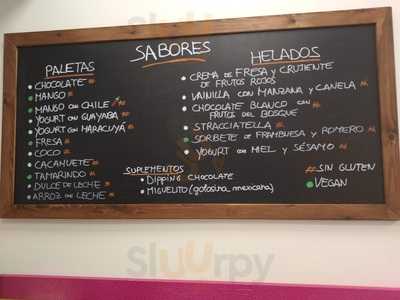 SABORES
PALETAS
CHOCOLATE
MANGO
MANGO CON CHILE
YOGURT CON GUAYABA
YOGURT CON MARACUYÁ
FRESA
COCO
CACAHUETE
TAMARINDO
DULCE DE LECHE
ARROZ CON LECHE
SUPLEMENTOS
DIPPING CHOCOLATE
MIGUELITO (golosina mexicana)
HELADOS
CREMA DE FRESA Y CRUJIENTE
DE FRUTOS ROJOS
VAINILLA CON MANZANA Y CANELA
CHOCOLATE BLANCO CON
FRUTOS DEL BOSQUE
STRACCIATELLA
SORBETE DE FRAMBUESA Y ROMERO
YOGURT CON MIEL Y SÉSAMO
SIN GLUTEN
VEGAN
Sluurpy